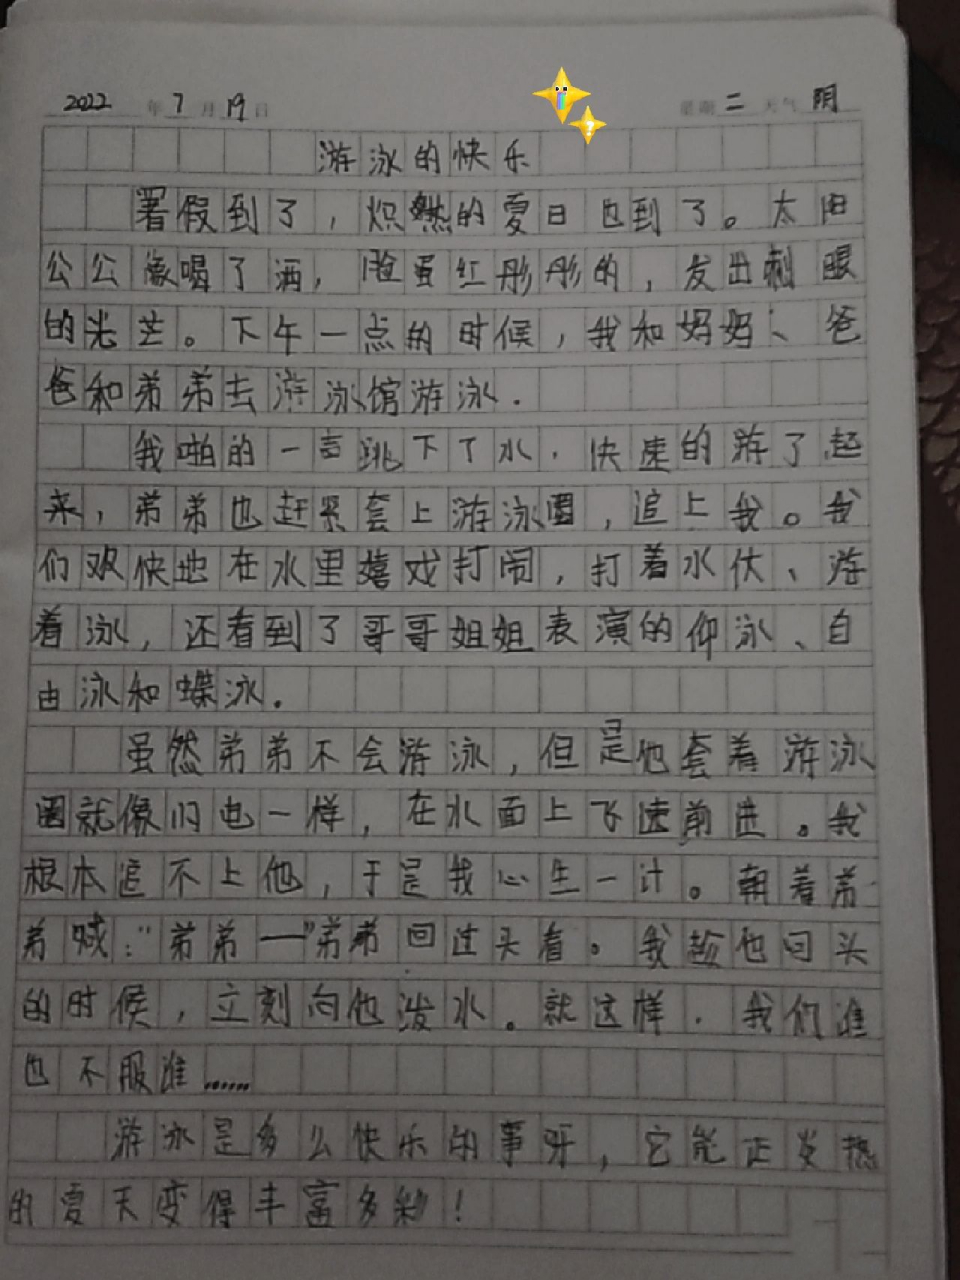 2022年7月19日 星期二 天气 阴
游泳的快乐
署假到了，炽燃的夏日也到了。太阳
公公像喝了酒，脸蛋红彤彤的，发出刺眼
的光芒。下午一点的时候，我和妈妈、爸
爸和弟弟去游泳馆游泳.
我啪的一声跳下了水.快速的游了起
来，弟弟也赶紧套上游泳圈，追上我。我
们欢快地在水里嬉戏打闹，打着水仗、游
着泳，还看到了哥哥姐姐表演的仰泳、自
由泳和蝶泳.
虽然弟弟不会游泳，但是他套着游泳
圈就像旧也一样，在水面上飞速前进。我
根本追不上他，于是我心生一计。朝着弟
弟喊："弟弟——"弟弟回过头看。我趁他回头
的时候，立刻向他泼水。就这样.我们谁
也不服谁……
游泳是多么快乐的事呀，它能正炎热
的夏天变得丰富多彩！